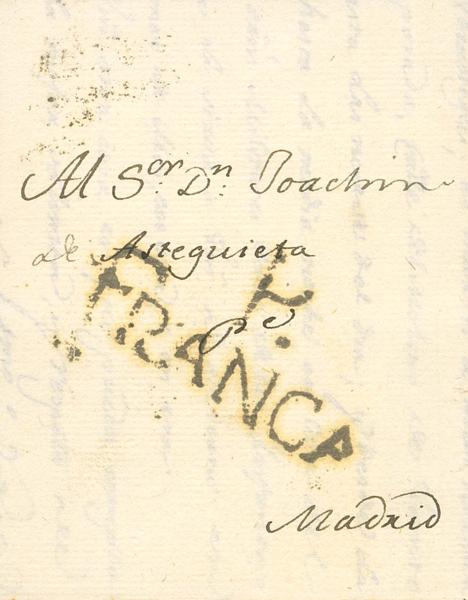 Al S.or D.n Joachin
de Asteguieta
F.
FRANCA
Madrid